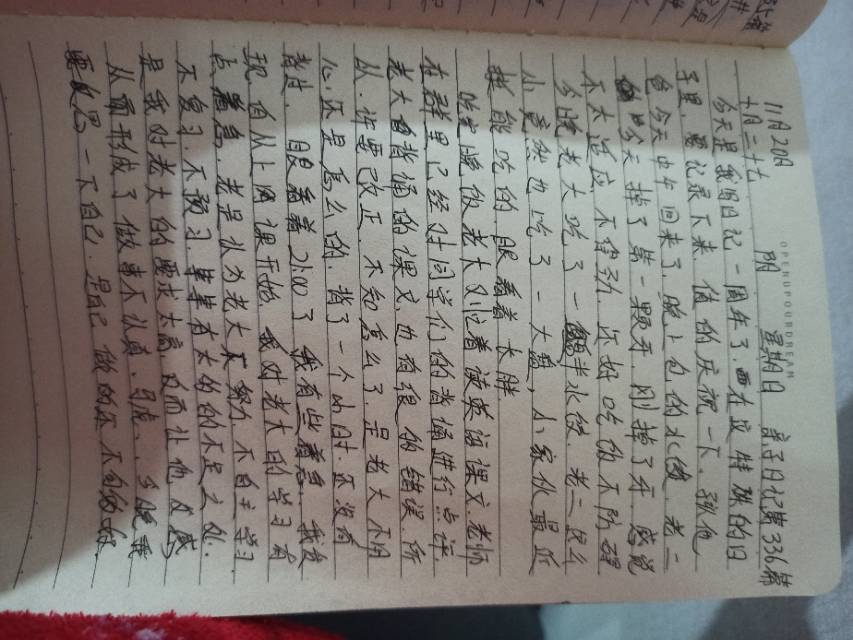 OPENUPYOURDREAM
11月20日 阴 星期日 亲子日记第336篇
十月二十七
今天是我写日记一周年了,在这特殊的日
子里,要记录下来,值的庆祝一下,孩他
爸今天中午回来了,晚上包的水饺,老二
今天掉了第一颗牙,刚掉了牙,感觉
不太适应,不得劲,还好吃的不
今晚老大吃了一水饺,老二
小竟然也吃了一大盘,小家伙最近
挺能吃的眼看着大胖
吃完晚饭老大又忙着读英语课文,老师
在群里已经对同学们的背诵进行点评,
老大背诵的课文,也有很的错误,所
以,许要改正,不知怎么了,是老大不用
心,还是怎么的,背了一个小时还没有
背过,眼看着21:00了,我有些着急,我发
现,自从上网课开始,我对老大的学习有
点着急,老是认为老大不努力,不自主学习
不复习,不预习等有大的不足之处.
是我对老大的要求太高,反而让他反感
从而形成了做事不认真,今晚我
要反思一下自己,是自己做的还不够好